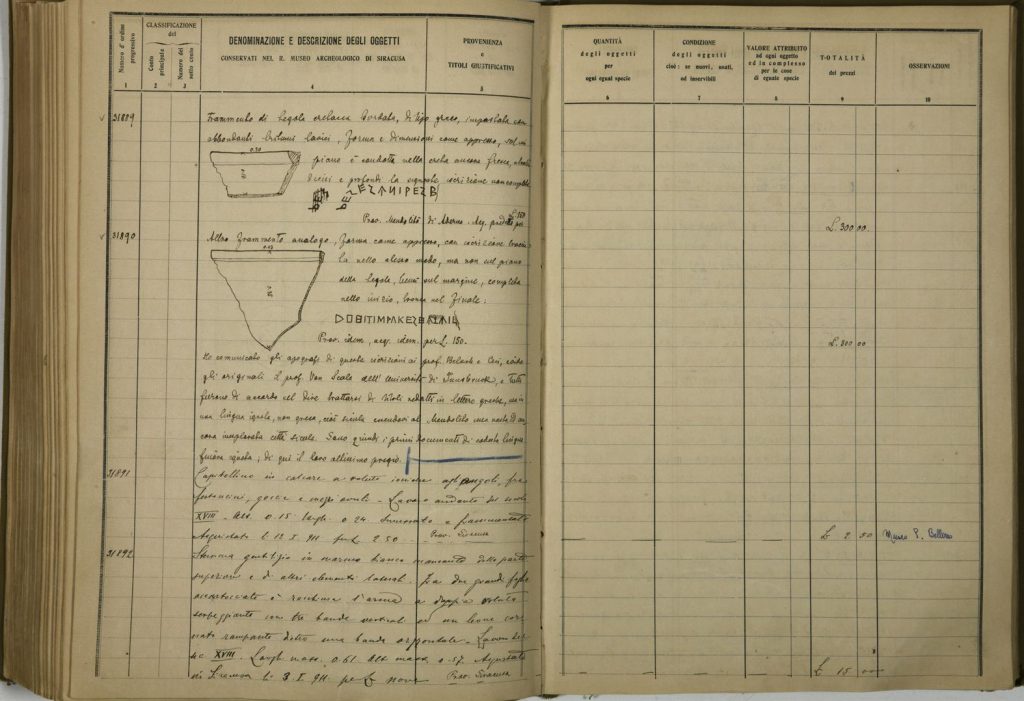 Numero d'ordine progressivo
CLASSIFICAZIONE del
Conto principale
Numero del sotto conto
DENOMINAZIONE E DESCRIZIONE DEGLI OGGETTI
CONSERVATI NEL R. MUSEO ARCHEOLOGICO DI SIRACUSA
PROVENIENZA
e
TITOLI GIUSTIFICATIVI
1 2 3 4 5
31889 Frammento di tegola cretacea bordata, di tipo greco, impastata con
abbondanti tritumi lavici, forma e dimensioni come appresso, sul cui
piano è condotta nella creta ancora fresca, a
0.20
decisi e profondi la seguente iscrizione non completa
Prov. Mendolito di Aderno. Acq. per
£. 150
31890 Altro frammento analogo, forma come appresso, con iscrizione traccia
ta nello stesso modo, ma non nel piano
della tegola, bensì sul margine, completa
nello inizio, tronca nel finale:
Prov. idem, acq. idem. per £. 150.
Ho comunicato gli apografi di queste iscrizioni ai prof. Beloch e Ceci, vide
gli originali il prof. Von Scala dell' Università di Innsbruck, e tutti
furono di accordo nel dire trattarsi di titoli redatti in lettere greche, ma in
una lingua ignota, non greca, cioè sicula essendovi al Mendolito una vasta ed an
cora inesplorata città sicula. Sono quindi i primi documenti di codesta lingua
finora ignota; di qui il loro altissimo pregio.
31891 Capitellino in calcare a volute ioniche agli angoli, fra
festoncini, gocce e mezzi ovuli - Lavoro andante del secolo
XVIII - Alt. 0.15 largh. 0.24
Acquistato li 12. I. 911 per £ 2.50 - Prov. Siracusa
31892 Stemma gentilizio in marmo bianco mancante della parte
superiore e di altri elementi laterali. Fra due grandi foglie
accartocciate è racchiusa l'arma a doppia voluta
serpeggiante con tre bande verticali ed un leone coro
nato rampante dietro una banda orizzontale - Lavoro del
sec. XVIII. Largh mass. 0.61 Alt mass. 0.57. Acquistato
in Siracusa li 3. I. 911. per £ nove Prov. Siracusa
QUANTITÀ
degli oggetti
per
ogni egual specie
CONDIZIONE
degli oggetti
cioè: se nuovi, usati,
od inservibili
VALORE ATTRIBUITO
ad ogni oggetto
ed in complesso
per le cose
di eguale specie
TOTALITÀ
dei prezzi
OSSERVAZIONI
6 7 8 9 10
£. 300 00.
£. 300 00
£ 2 50 Museo P. Bellomo
£ 15 00